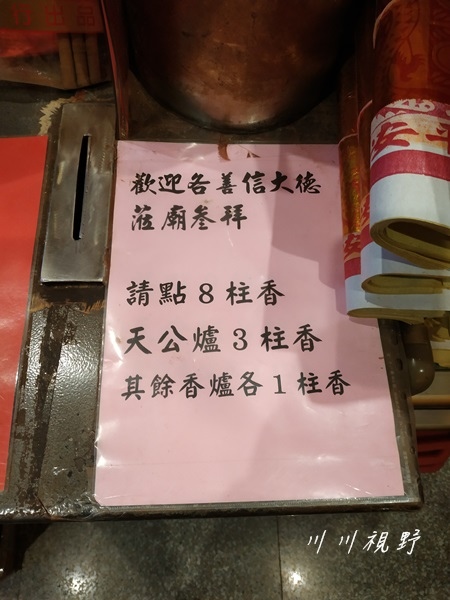 歡迎各善信大德
蒞廟參拜
請點8柱香
天公爐3柱香
其餘香爐各1柱香
川川視野